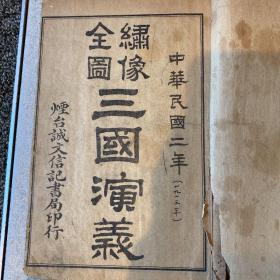 中華民國二年(一九一三年)
繡像
全圖
三國演義
煙台誠文信記書局印行